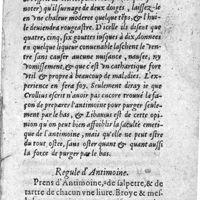 noter) qu'il surnage de deux doigts, laissez-le
en vne chaleur moderee quelque teps, & l'hui-
le deuiendra rougeastre. D'icelle ils disent que
quatre, cinq, six gouttes iusques à dix, données
en quelque liqueur conuenable laschent le ven-
tre sans causer aucune nuisance, nausee, ny
vomissement, & que c'est vn cathartique fort
vtil, & propre à beaucoup de maladies. L'ex-
perience en fera foy. Seulement diray ie que
Crollius escrit n'auoir pas encore trouué la fa-
çon de preparer l'antimoine pour purger seule-
ment par le bas, & Libauius est de cette opi-
nion qu'on peut bien affoiblir la faculté emeti-
que de l'antimoine, mais qu'elle ne peut estre
du tout ostée, sans oster quant & quant aussi
la force de purger par le bas.
Regule d'Antimoine.
Prens d'Antimoine, de salpetre, & de
tartre de chacun vne liure. Broye & mes-